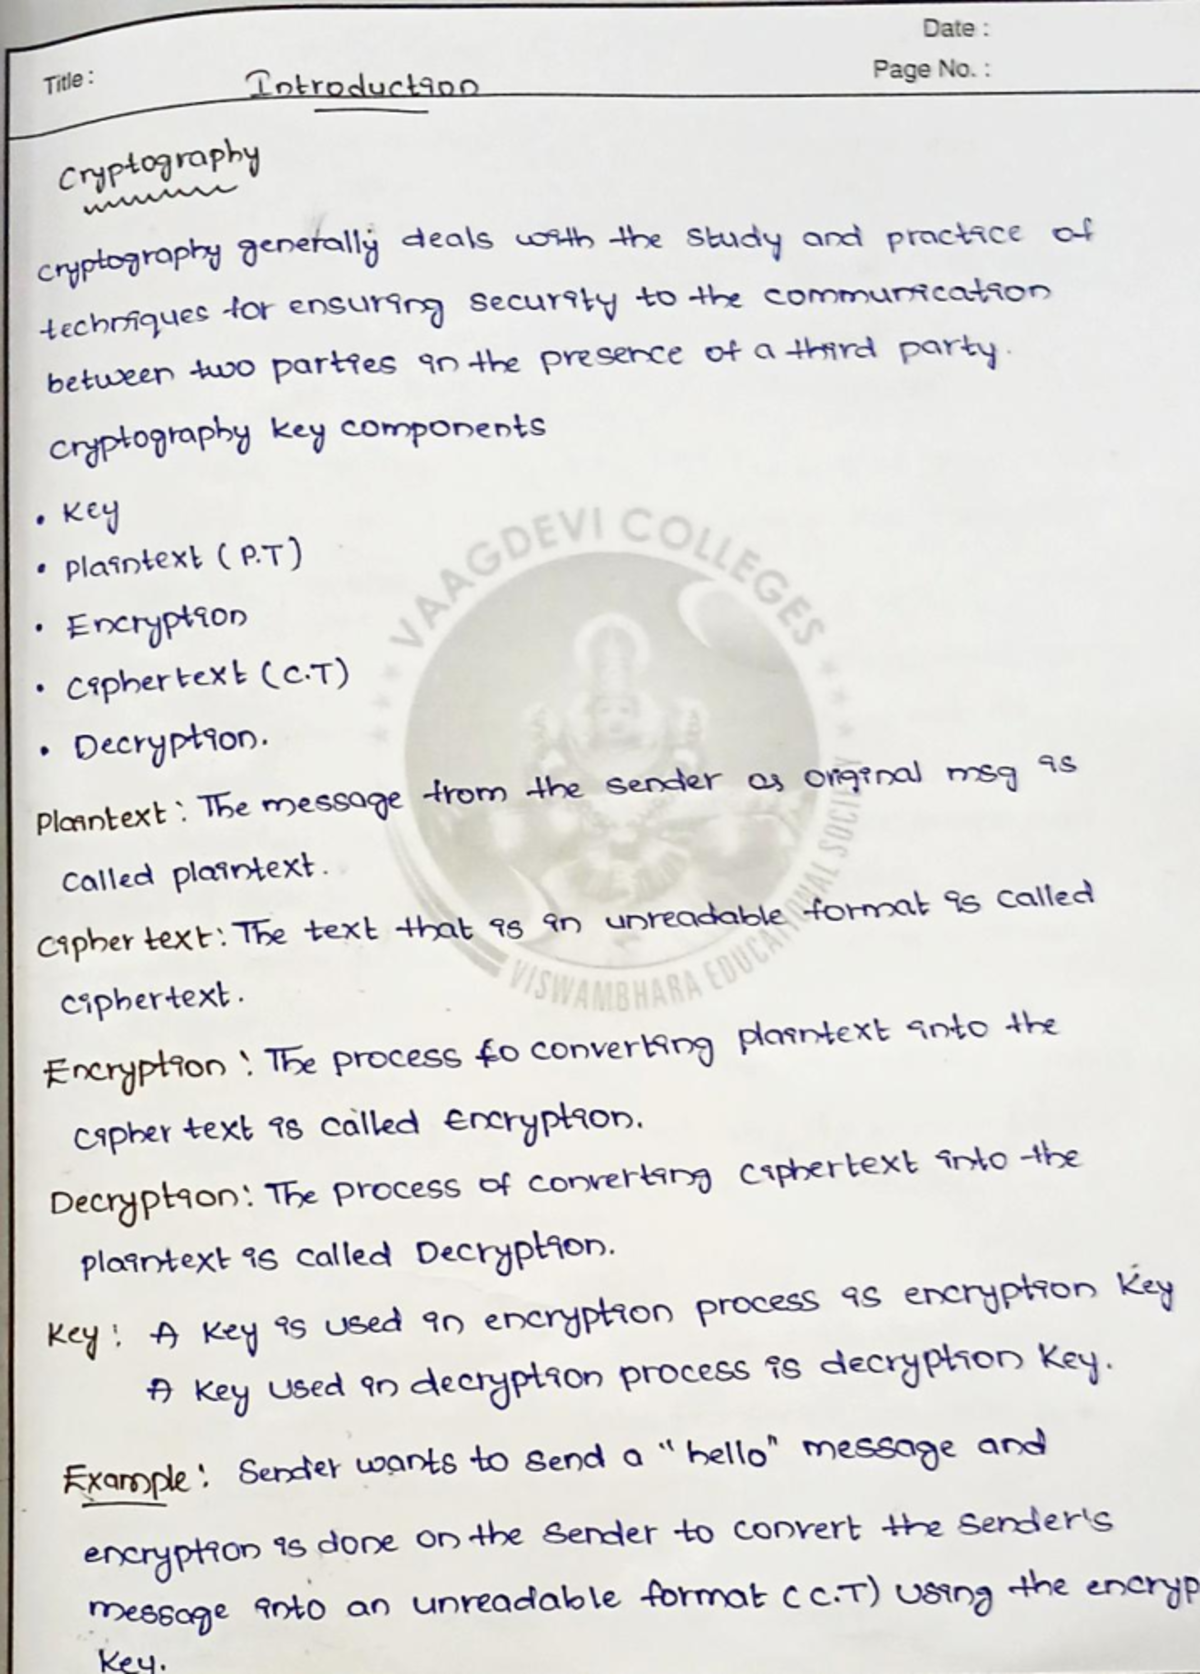 Date :
Title :
Introduction
Page No. :
Cryptography
cryptography generally deals with the study and practice of
techniques for ensuring security to the communication
between two parties in the presence of a third party.
cryptography key components
• Key
• plaintext (P.T)
• Encryption
• ciphertext (C.T)
• Decryption.
Plaintext: The message from the sender as original msg is
called plaintext.
cipher text: The text that is in unreadable format is called
ciphertext.
Encryption: The process fo converting plaintext into the
cipher text is called Encryption.
Decryption: The process of converting ciphertext into the
plaintext is called Decryption.
Key: A Key is used in encryption process is encryption Key
A Key used in decryption process is decryption Key.
Example: Sender wants to send a "hello" message and
encryption is done on the sender to convert the sender's
message into an unreadable format (C.T) using the encryp
Key.
VAAGDEVI COLLEGES
VISWAMBHARA EDUCATIONAL SOCIETY